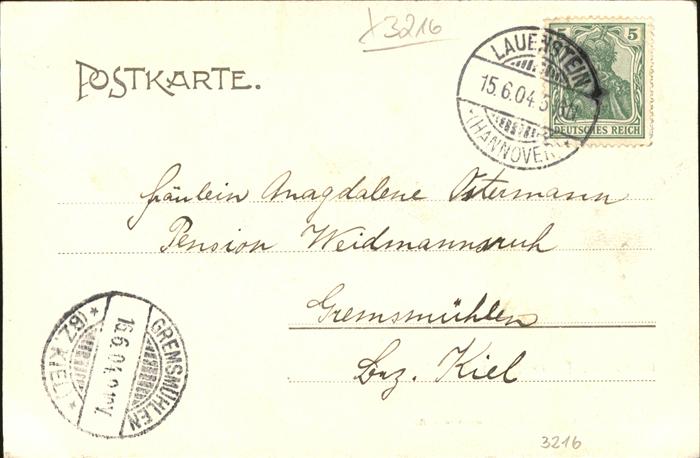 3216
POSTKARTE.
LAUENSTEIN
15.6.04.5
(HANNOVER)
5 5
DEUTSCHES REICH
Fräulein Magdalene Ostermann
Pension Weidmannsruh
Gremsmühlen
Bez. Kiel
GREMSMÜHLEN
(BZ. KIEL)
3216